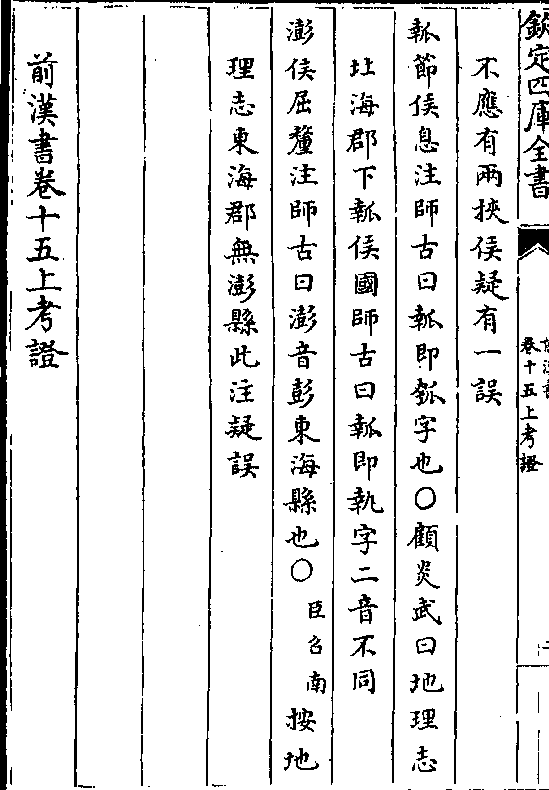 欽定四庫全書
卷十五上考證
不應有兩挾侯疑有一誤
瓡節侯息注師古曰瓡即瓠字也○顧炎武曰地理志
北海郡下瓡侯國師古曰瓡即執字二音不同
澎侯屈釐注師古曰澎音彭東海縣也○臣召南按地
理志東海郡無澎縣此注疑誤
前漢書卷十五上考證